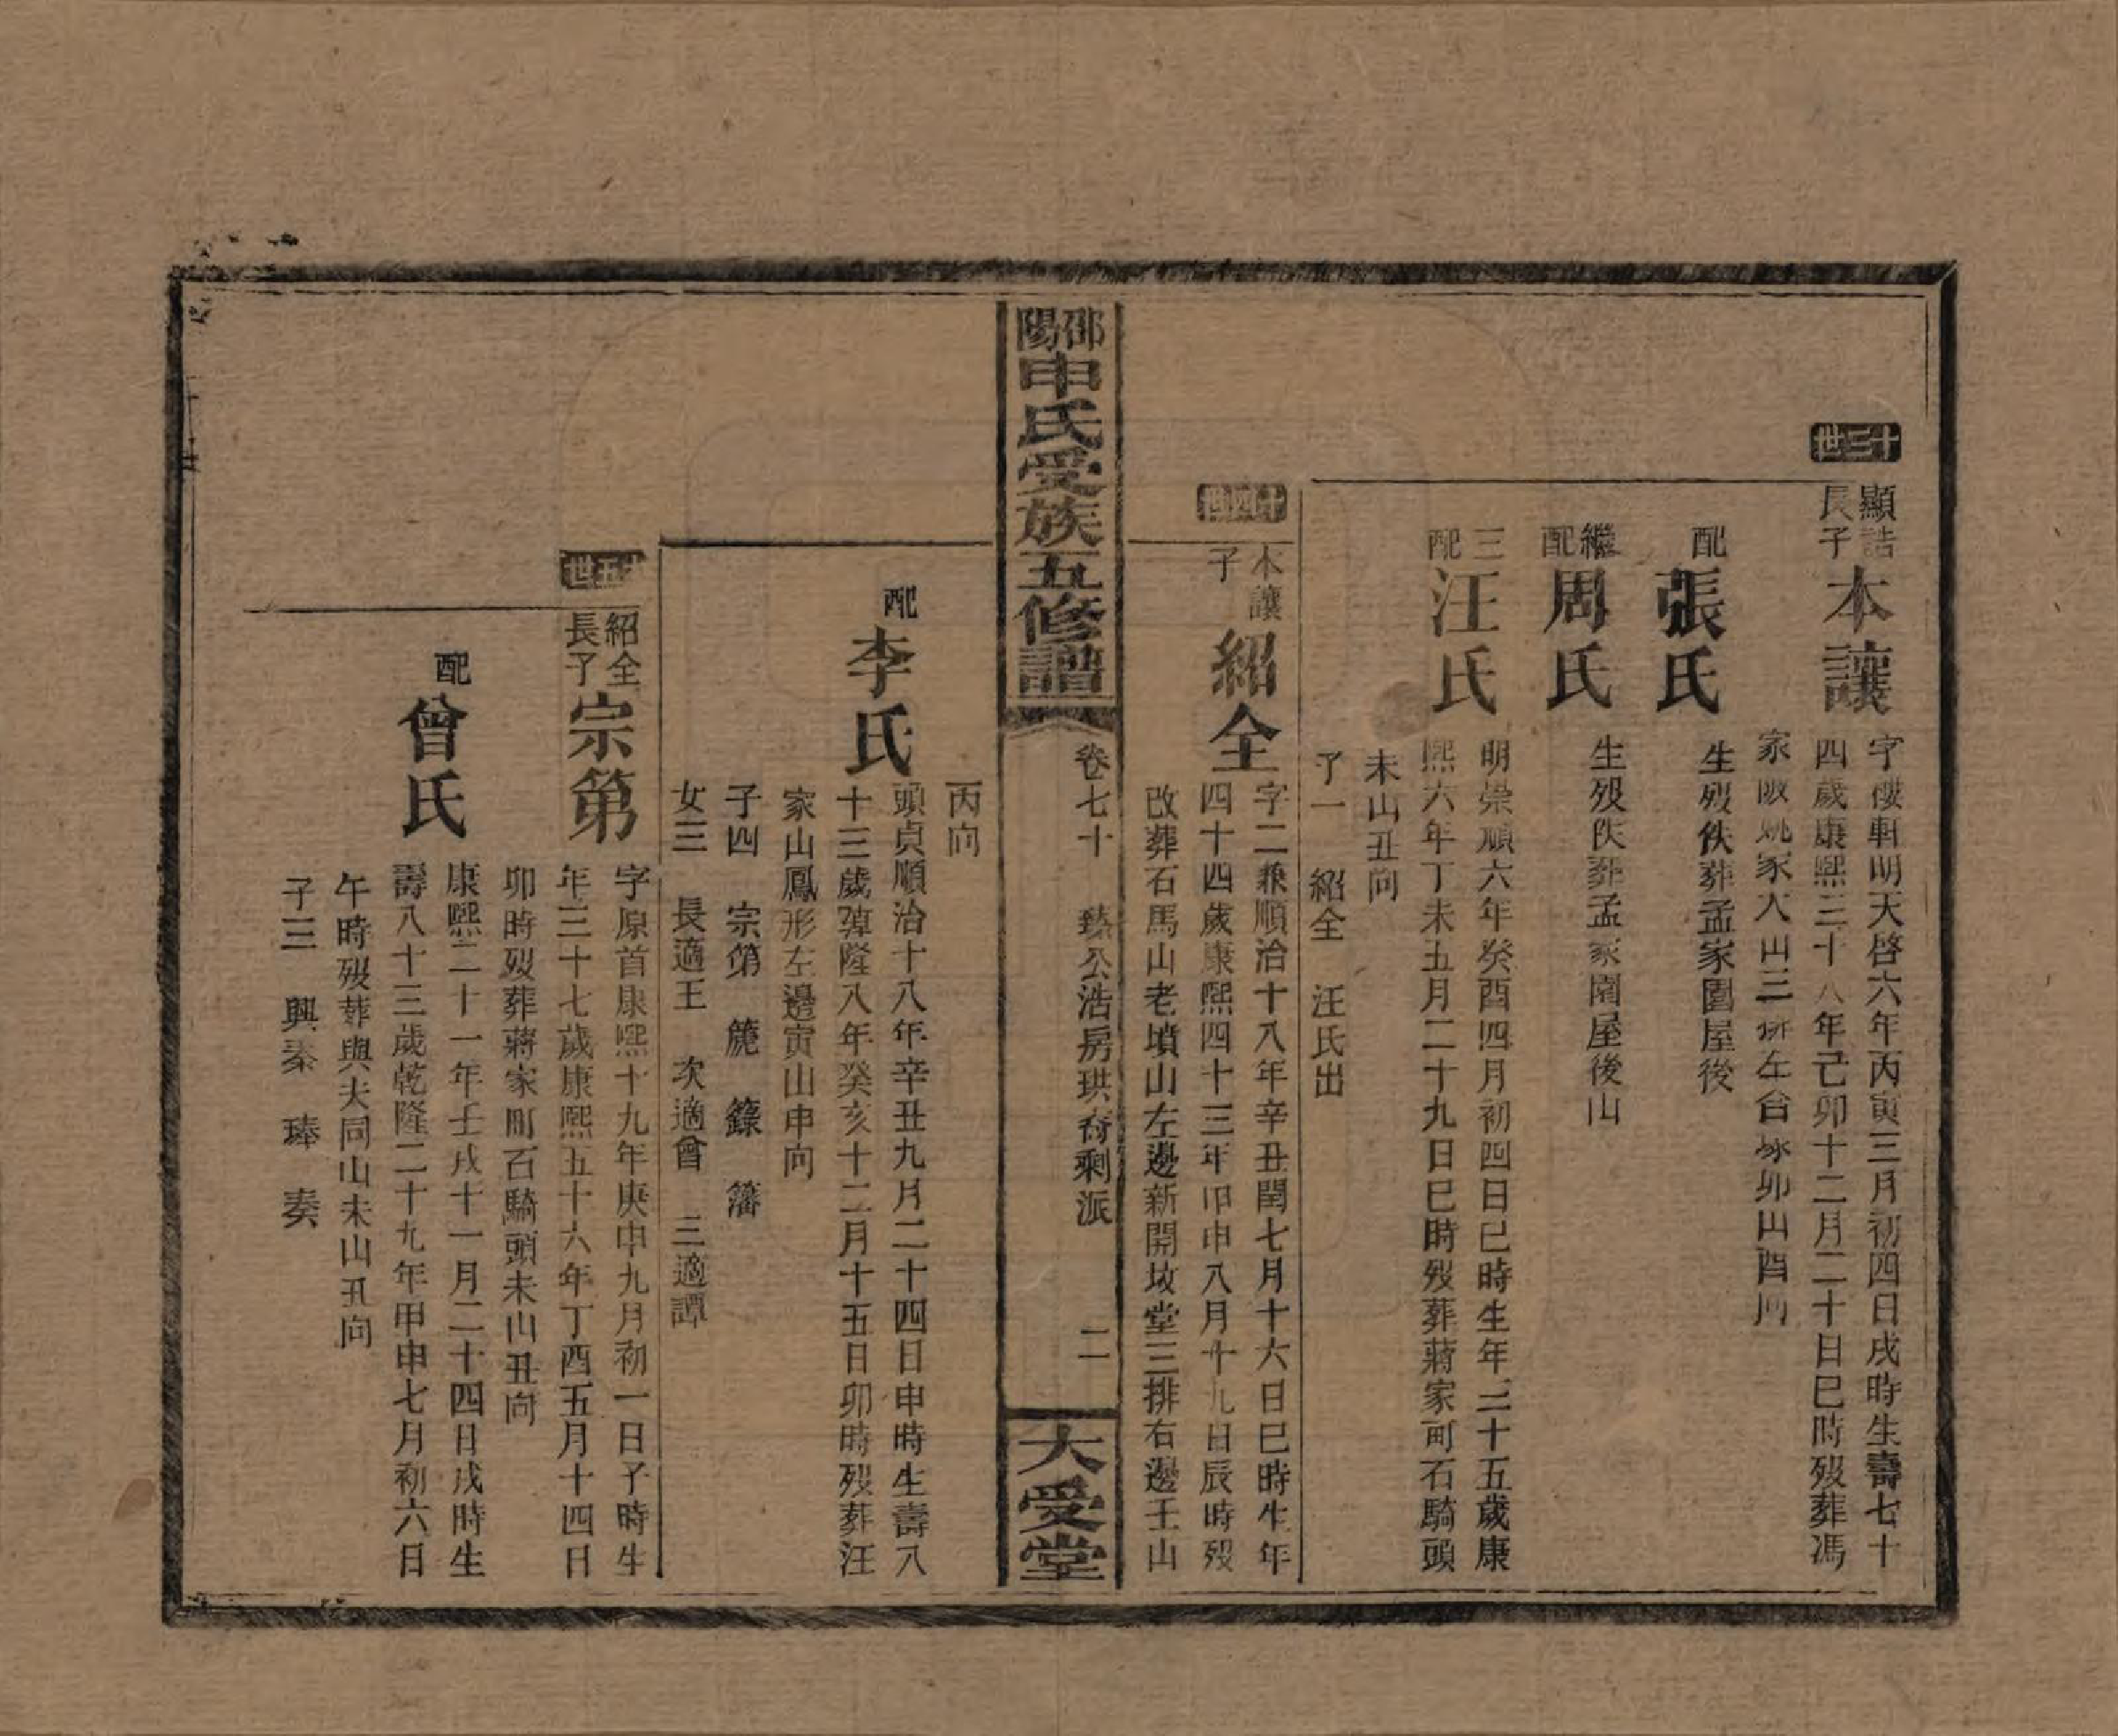 十三世
顯誥長子
本讓
字 軒明天啓六年丙寅三月初四日戌時生壽七十
四歲康熙三十八年己卯十二月二十日巳時歿葬馮
家 家大山三 左台 卯山酉向
配張氏
生歿佚葬孟家園屋後
繼配周氏
生歿佚葬孟家園屋後山
三配汪氏
明崇順六年癸酉四月初四日巳時生年三十五歲康
熙六年丁未五月二十九日巳時歿葬蔣家町石騎頭
未山丑向
子一 紹全 汪氏出
十四世
本讓子
紹全
字二乘順治十八年辛丑閏七月十六日巳時生年
四十四歲康熙四十三年甲申八月十九日辰時歿
改葬石馬山老墳山左邊新開坟堂三排右邊壬山
邵陽申氏受族五修譜
卷七十 臻公浩房珙裔剩派 二
大受堂
丙向
配李氏
頭貞順治十八年辛丑九月二十四日申時生壽八
十三歲乾隆八年癸亥十二月十五日卯時歿葬汪
家山鳳形左邊寅山申向
子四 宗第 簏 籙 籓
女三 長適王 次適曾 三適譚
十五世
紹全長子
宗第
字原首康熙十九年庚申九月初一日子時生
年三十七歲康熙五十六年丁酉五月十四日
卯時歿葬蔣家町石騎頭未山丑向
配曾氏
康熙二十一年壬戌十一月二十四日戌時生
壽八十三歲乾隆二十九年甲申七月初六日
午時歿葬與夫同山未山丑向
子三 興秦 瑧 奏